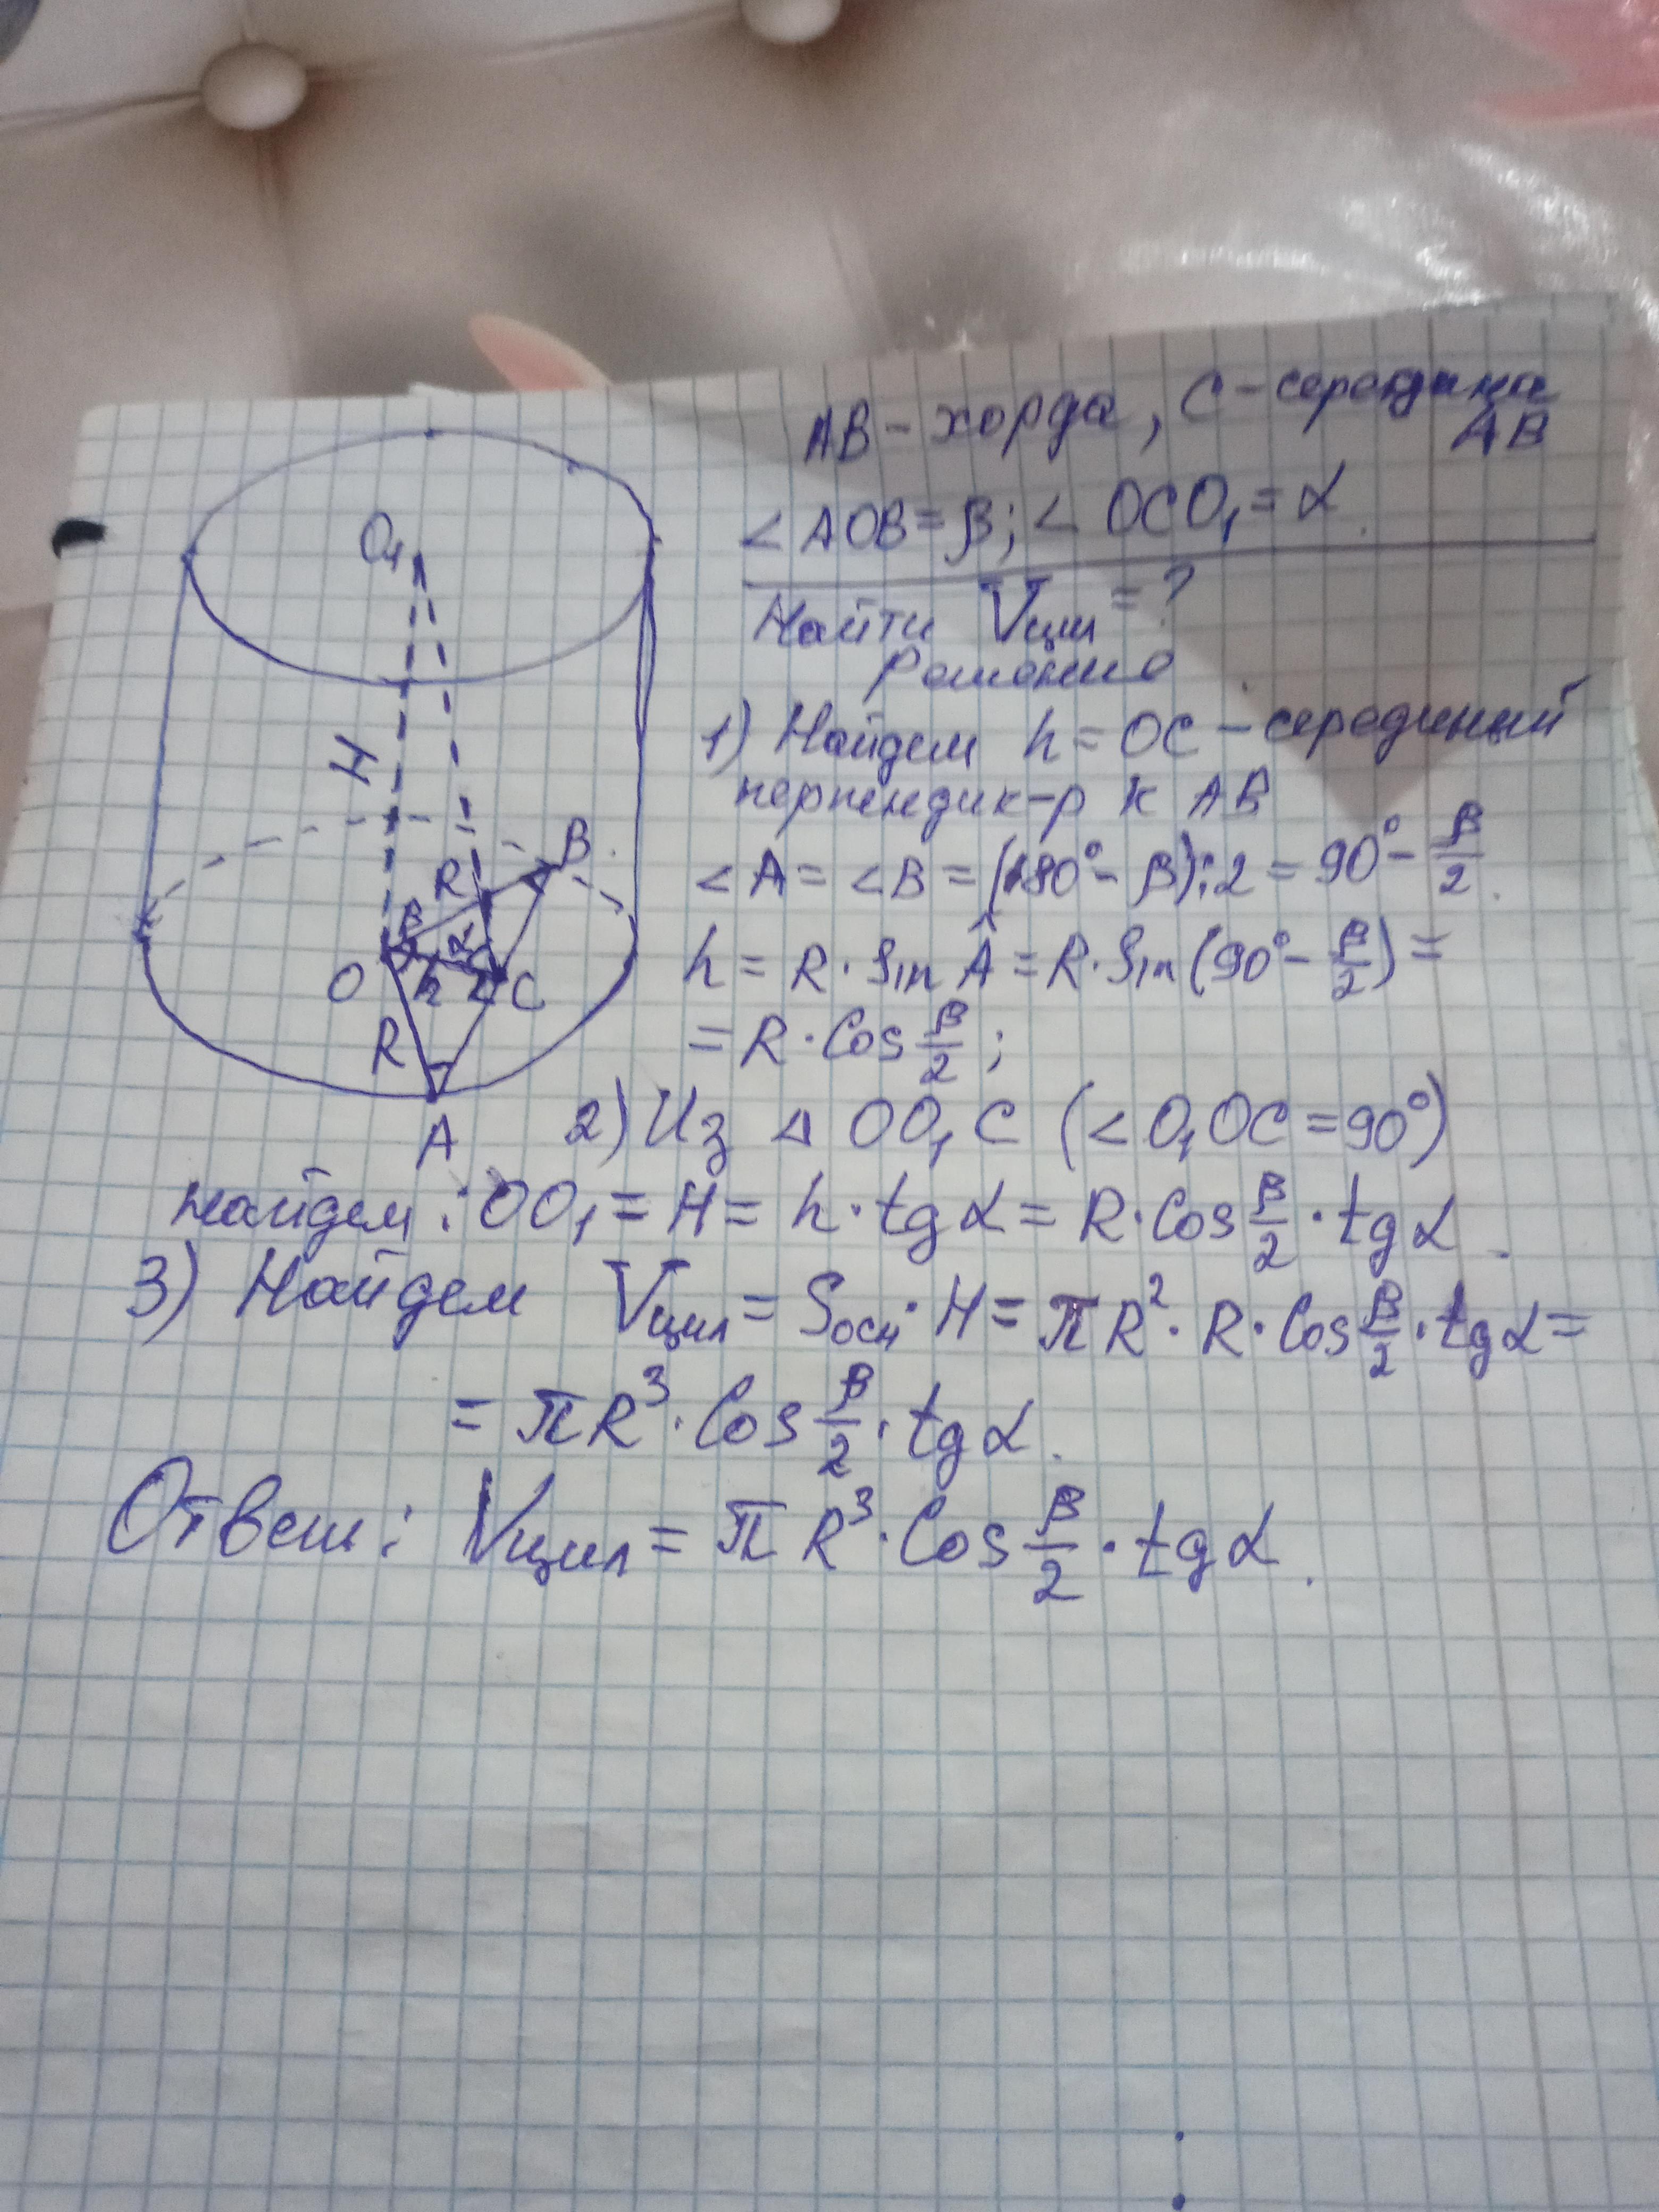 AB - хорда, C - середина
AB
∠AOB = β; ∠OCO₁ = α.
Найти Vцил = ?
Решение
1) Найдем h = OC - серединный
перпендик-р к AB
∠A = ∠B = (180° - β):2 = 90° - β/2.
h = R · Sin Â = R · Sin(90° - β/2) =
= R · Cos β/2;
2) Из △ OO₁C (∠O₁OC = 90°)
найдем: OO₁ = H = h · tg α = R · Cos β/2 · tg α.
3) Найдем Vцил = Sосн · H = πR² · R · Cos β/2 · tg α =
= πR³ · Cos β/2 · tg α.
Ответ: Vцил = πR³ · Cos β/2 · tg α.
O₁
H
B
R
β
α
O
h
C
R
A